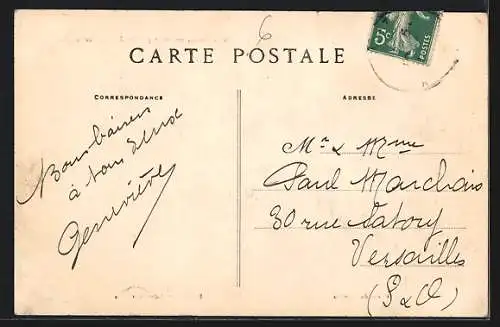 6
CARTE POSTALE
5c
POSTES
CORRESPONDANCE
ADRESSE
Bons baisers
à tous deux
Geneviève
Mr & Mme
Paul Marchais
30 rue Satory
Versailles
(S & O)